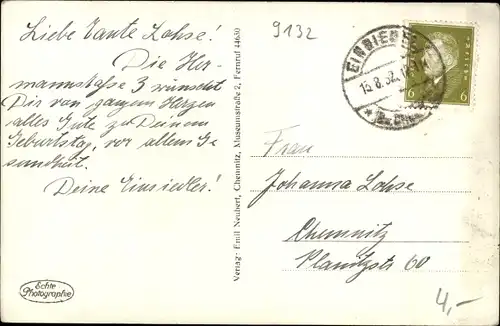 Liebe Tante Lohse!
Die Her-
mannstraße 3 wünscht
Dir von ganzem Herzen
alles Gute zu Deinem
Geburtstag, vor allem Ge
sundheit.
Deine Einsiedler!
Echte
Photographie
Verlag: Emil Neubert, Chemnitz, Museumstraße 2, Fernruf 44650
9132
EINSIEDEL
15.8.32.
6 6
Frau
Johanna Lohse
Chemnitz
Planitzstr 60
4,-